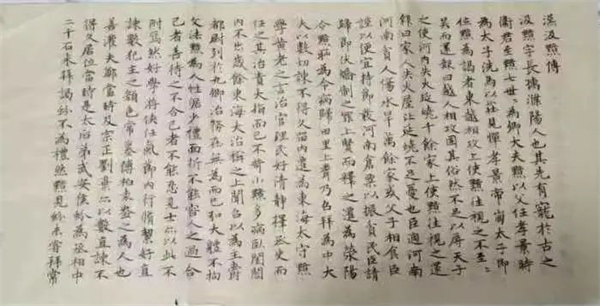 汲黯傳
汲黯字長孺濮陽人也其先有寵於古之
衛君至黯七世〻為卿大夫黯以父任孝景時
為太子洗馬以莊見憚孝景帝崩太子即
位黯為謁者東越相攻上使黯往視之不至〻
吳而還報曰越人相攻固其俗然不足以辱天子
之使河內失火延燒千餘家上使黯往視之還
報曰家人失火屋比延燒不足憂也臣過河南
河南貧人傷水旱萬餘家或父子相食臣
謹以便宜持節發河南倉粟以振貧民臣請
歸節伏矯制之罪上賢而釋之遷為滎陽
令黯恥為令病歸田里上聞乃召拜為中大
夫以數切諫不得久留內遷為東海太守黯
學黃老之言治官理民好清靜擇丞史而
任之其治責大指而已不苛小黯多病臥閨閤
內不出歲餘東海大治稱之上聞召以為主爵
都尉列於九卿治務在無為而已弘大體不拘
文法黯為人性倨少禮面折不能容人之過合
己者善待之不合己者不能忍見士亦以此不
附焉然好學游俠任氣節內行脩絜好直
諫數犯主之顏色常慕傅柏袁盎之為人也
善灌夫鄭當時及宗正劉棄亦以數直諫不
得久居位當時是太后弟武安侯蚡為丞相中
二千石來拜謁蚡不為禮然黯見蚡未嘗拜常